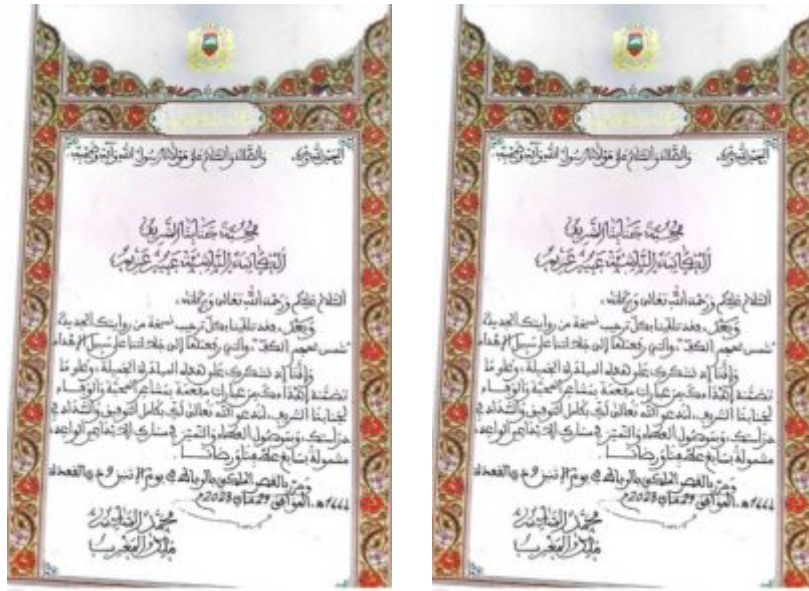 الحمد لله وحده والصلاة والسلام على مولانا رسول الله وآله وصحبه
محبة جنابنا الشريف
الكاتبة الناشئة عبير عزيم
السلام عليكم ورحمة الله تعالى وبركاته،
وبعد، فقد تلقينا بكل ترحيب نسخة من روايتك الجديدة
"شمس تحجب الكل"، والتي رفعتها إلى جلالتنا على سبيل الإهداء
وإننا إذ نشكرك على هذه المبادرة الجميلة، وعلى ما
تضمنه إهداؤك من عبارات مفعمة بمشاعر المحبة والوفاء
لجنابنا الشريف، لندعو الله تعالى لك بكامل التوفيق والسداد في
دراستك، وبموصول العطاء والتميز في مسارك الإبداعي الواعد،
مشمولة بسابغ عطفنا ورضانا.
وحرر بالقصر الملكي بالرباط في يوم الإثنين 9 ذي القعدة
1444هـ، الموافق 29 ماي 2023م
محمد السادس
ملك المغرب
الحمد لله وحده والصلاة والسلام على مولانا رسول الله وآله وصحبه
محبة جنابنا الشريف
الكاتبة الناشئة عبير عزيم
السلام عليكم ورحمة الله تعالى وبركاته،
وبعد، فقد تلقينا بكل ترحيب نسخة من روايتك الجديدة
"شمس تحجب الكل"، والتي رفعتها إلى جلالتنا على سبيل الإهداء
وإننا إذ نشكرك على هذه المبادرة الجميلة، وعلى ما
تضمنه إهداؤك من عبارات مفعمة بمشاعر المحبة والوفاء
لجنابنا الشريف، لندعو الله تعالى لك بكامل التوفيق والسداد في
دراستك، وبموصول العطاء والتميز في مسارك الإبداعي الواعد،
مشمولة بسابغ عطفنا ورضانا.
وحرر بالقصر الملكي بالرباط في يوم الإثنين 9 ذي القعدة
1444هـ، الموافق 29 ماي 2023م
محمد السادس
ملك المغرب